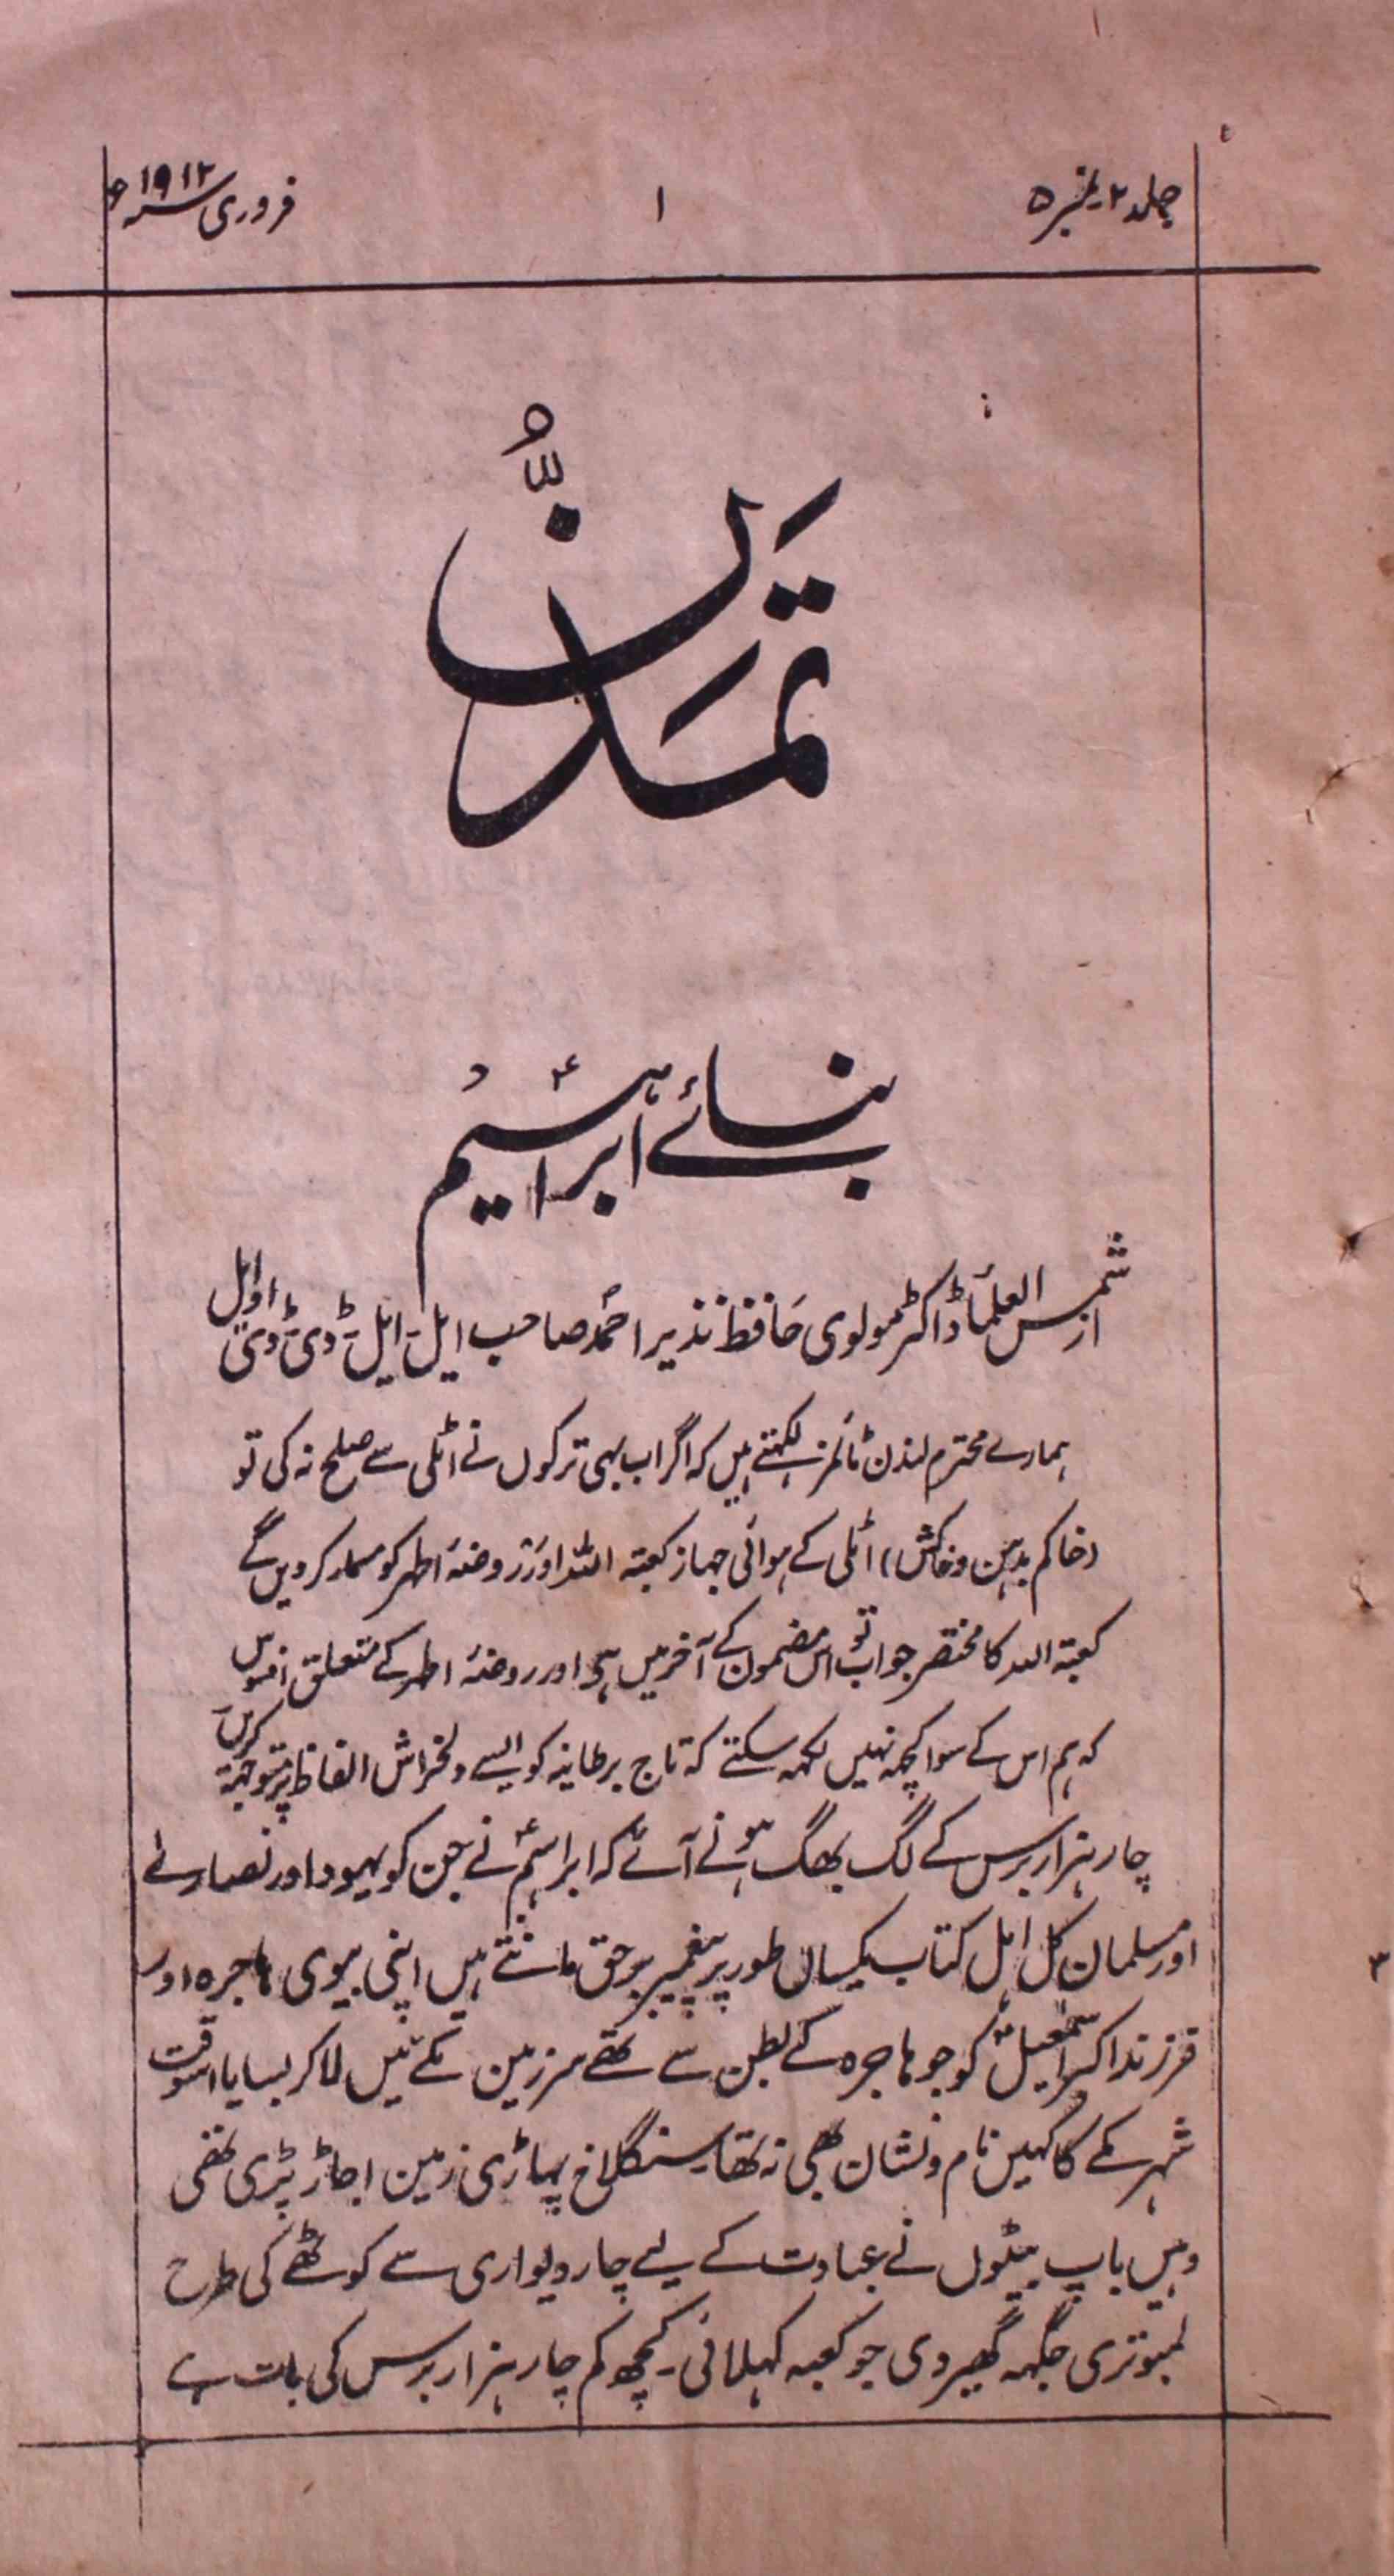 جلد ۲ نمبر ۵
۱
فروری سنہ ۱۹۱۲ء
تمدّن
بنائے ابراہیمؑ
از شمس العلما ڈاکٹر مولوی حافظ نذیر احمد صاحب ایل۔ ایل۔ ڈی۔ ڈی او ایل
ہمارے محترم لنڈن ٹائمز لکہتے ہیں کہ اگر اب بہی ترکوں نے اٹلی سے صلح نہ کی تو
(خاکم بدہن وخاکش) اٹلی کے ہوائی جہاز کعبتہ اللہ اور روضۂ اطہر کو مسمار کردیں گے
کعبتہ اللہ کا مختصر جواب تو اس مضمون کے آخر میں ہی اور روضۂ اطہر کے متعلق افسوس
کہ ہم اس کے سوا کچہہ نہیں لکہہ سکتے کہ تاج برطانیہ کو ایسے دلخراش الفاظ پر متوجہ کریں
چار ہزار برس کے لگ بھگ ہونے آئے کہ ابراہیمؑ نے جن کو یہود اور نصارےٰ
اور مسلمان کل اہل کتاب یکساں طور پر پیغمبر برحق مانتے ہیں اپنی بیوی ہاجرہ اور
فرزند اکبر اسمٰعیلؑ کو جو ہاجرہ کے بطن سے تھے سرزمین مکے میں لاکر بسایا اسوقت
شہر مکے کا کہیں نام ونشان بھی نہ تھا۔ سنگلاخ پہاڑی زمین اجاڑ پڑی تھی
وہیں باپ بیٹوں نے عبادت کے لیے چار دیواری سے کوٹھے کی طرح
لمبوتری جگہہ گھیر دی جو کعبہ کہلائی۔ کچھ کم چار ہزار برس کی بات ہے